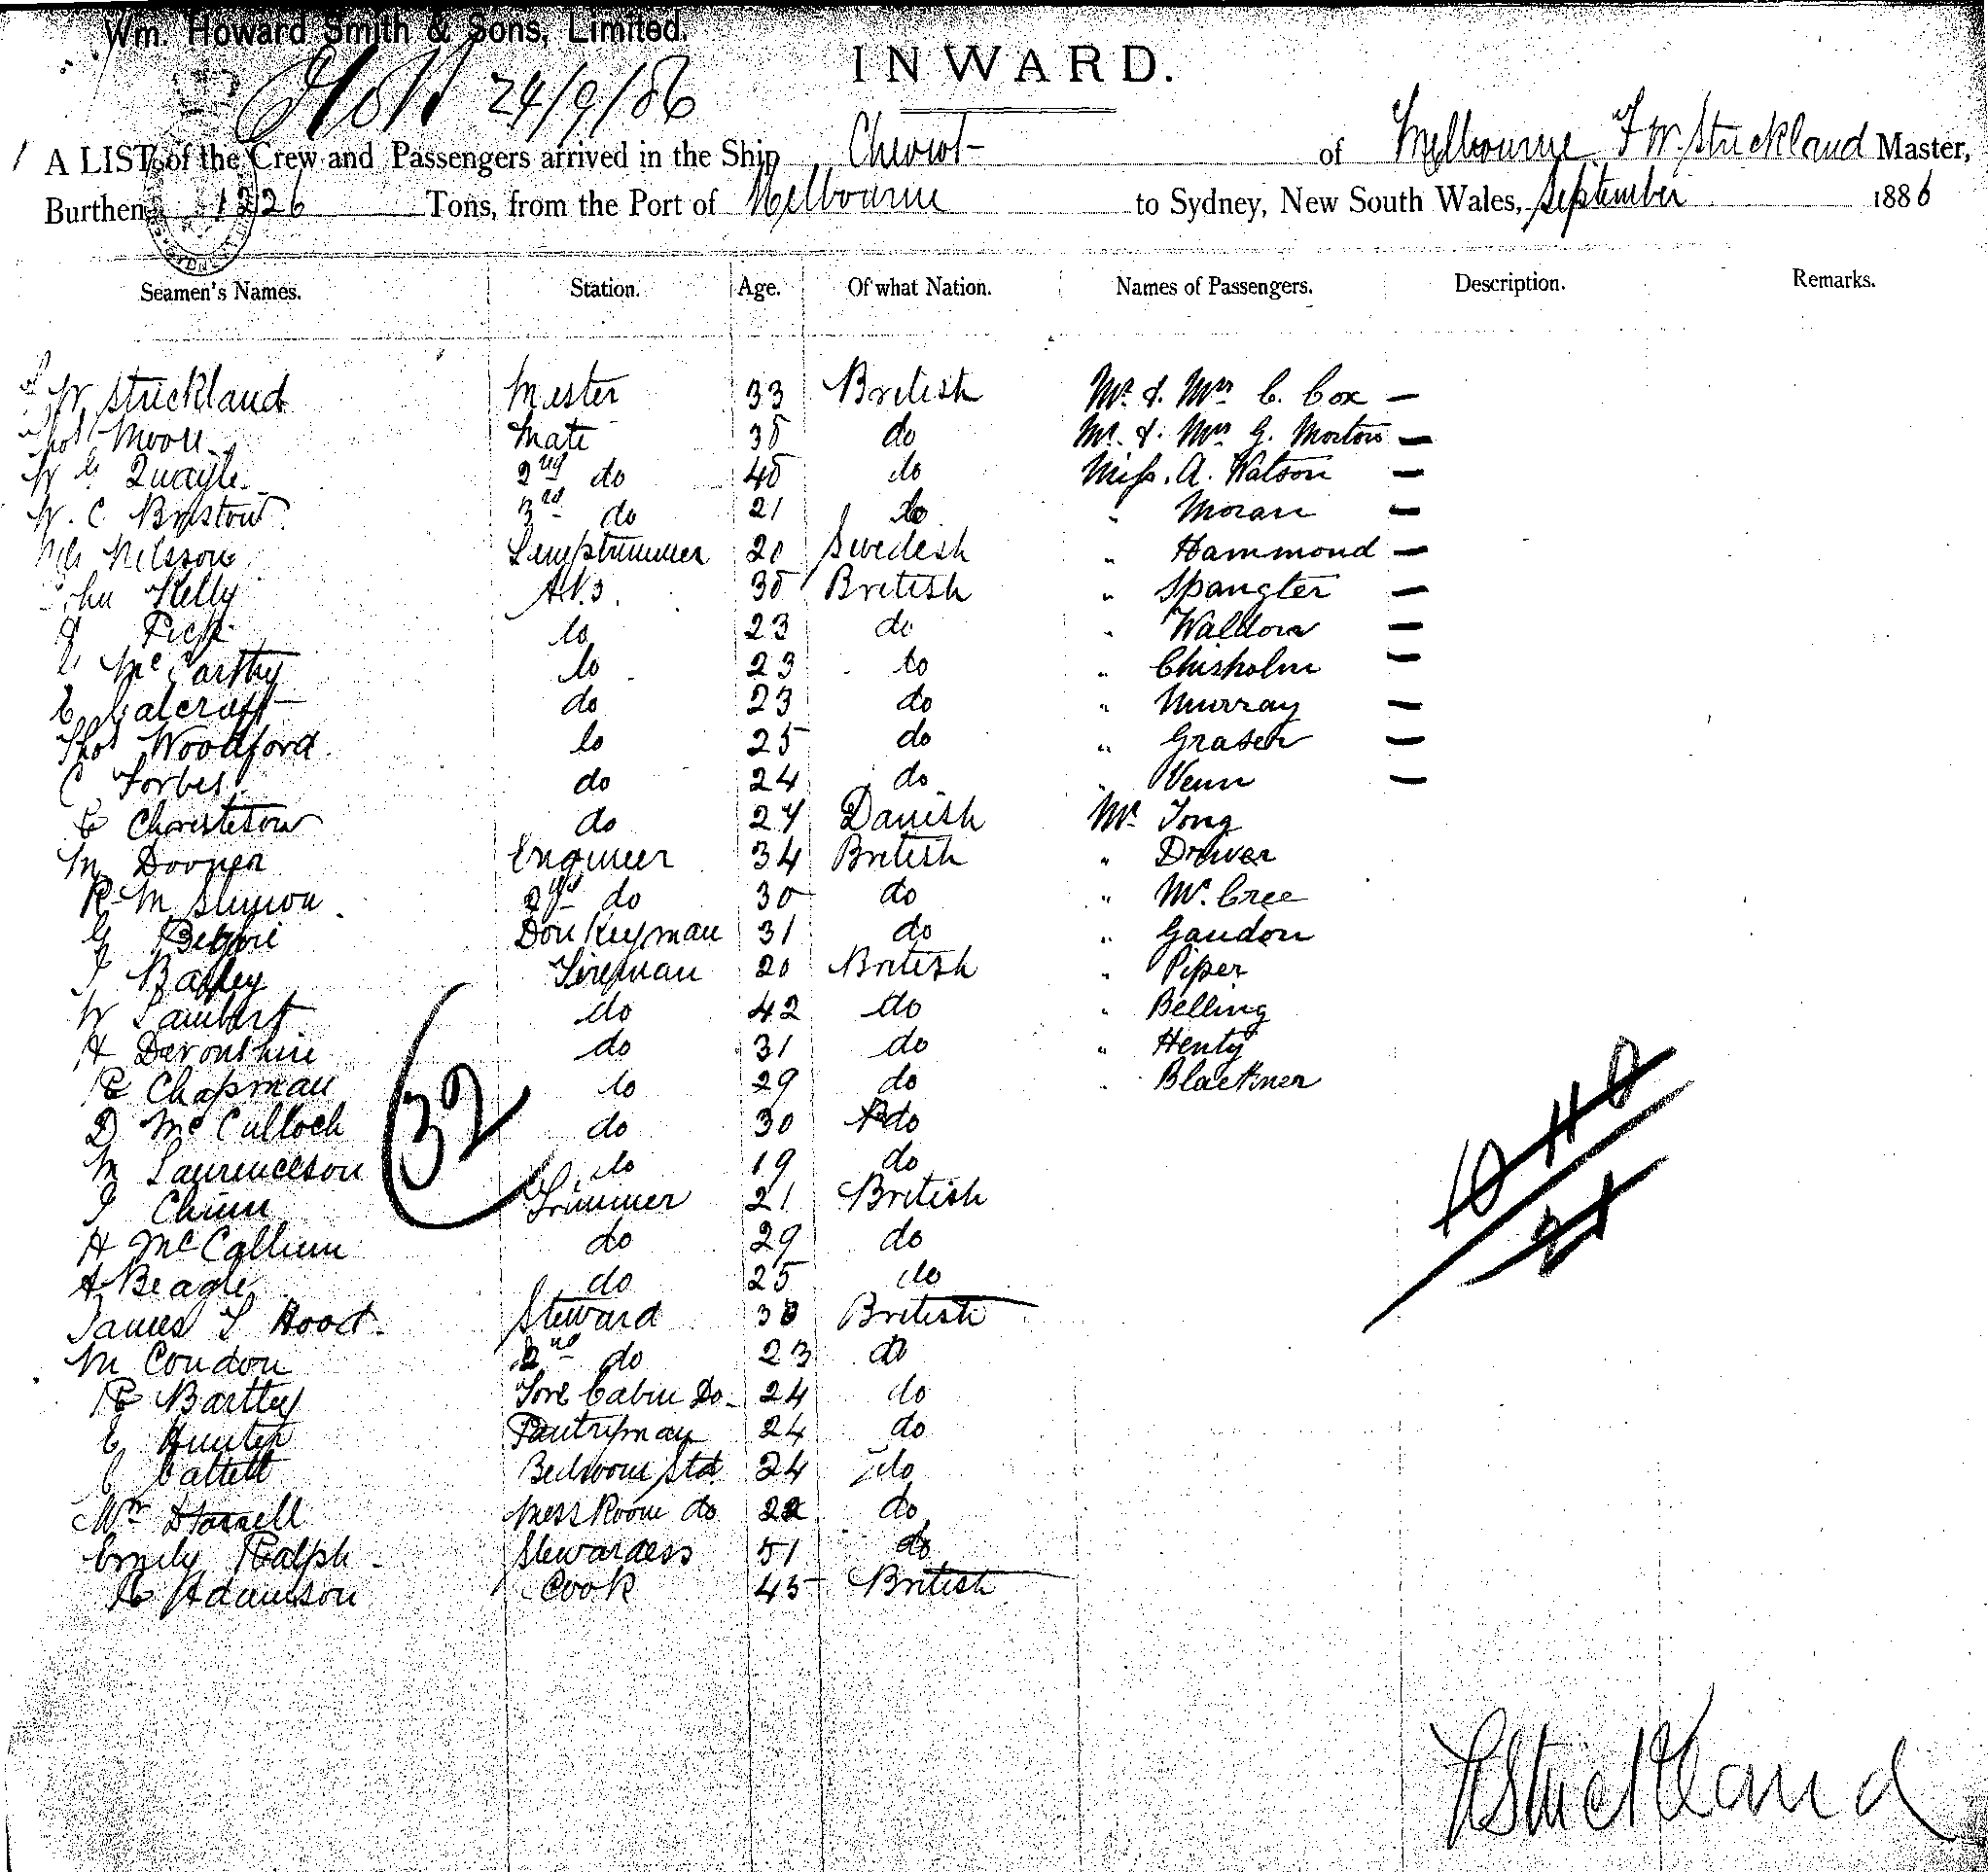 Wm. Howard Smith & Sons, Limited.
INWARD.
24/9/86
A LIST of the Crew and Passengers arrived in the Ship Cheviot of Melbourne F W. Strickland Master,
Burthen 1226 Tons, from the Port of Melbourne to Sydney, New South Wales, September 1886
Seamen's Names. Station. Age. Of what Nation. Names of Passengers. Description. Remarks.
W Strickland Master 33 British Mr. & Mrs C. Cox —
Thos Moore Mate 35 do Mr. & Mrs G. Morton —
W G Quayle 2nd do 45 do Miss. A. Watson —
W. C Bristow 3rd do 21 do " Moran —
Nils Nilsson Lamptrimmer 20 Swedish " Hammond —
John Kelly A.B.s. 35 British " Spangler —
do 23 do " Waldon —
McCarthy do 23 do " Chisholm —
C Calcraft do 23 do " Murray —
Thos Woodford do 25 do " Graser —
C Forbes do 24 do " Venn —
C Christeson do 24 Danish Mr. Tong
M Engineer 34 British " Driver
R M Slimon 2nd do 30 do " McCree
G Donkeyman 31 do " Gaudon
Fireman 20 British " Piper
W Lambert do 42 do " Belling
H Devonshire do 31 do " Henty
R Chapman do 29 do " Blackner
D McCulloch do 30 do
M Laurenceson do 19 do
Trimmer 21 British
H McCallum do 29 do
A Beagle do 25 do
James S Hood Steward 38 British
M Condon 2nd do 23 do
R Bartley Fore Cabin Do 24 do
E Hunter Pantryman 24 do
C Cattell Bedroom Std 24 do
Wm Messroom do 22 do
Emily Ralph Stewardess 51 do
R Adamson Cook 45 British
32
10 11 0
21
Strickland